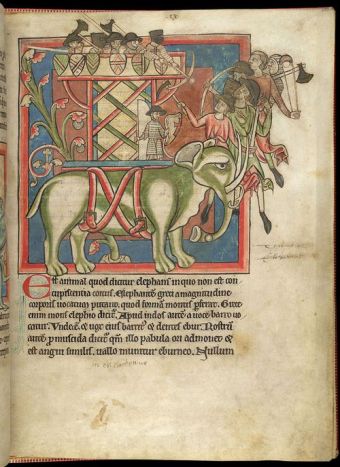 Est animal quod dicitur elephans in quo non est con
cupiscentia coitus. Elephantem greci a magnitudine
corporis vocatum putant, quod formam montis preferat. Grece
enim mons elephio dicitur. Apud indos autem a voce barro vo
catur. Unde et vox eius barritus et dentes ebur. Rostrum
autem pmuscida dicitur quoniam illo pabula ori admovet et
est angui similis, vallo munitur eburneo. Nullum